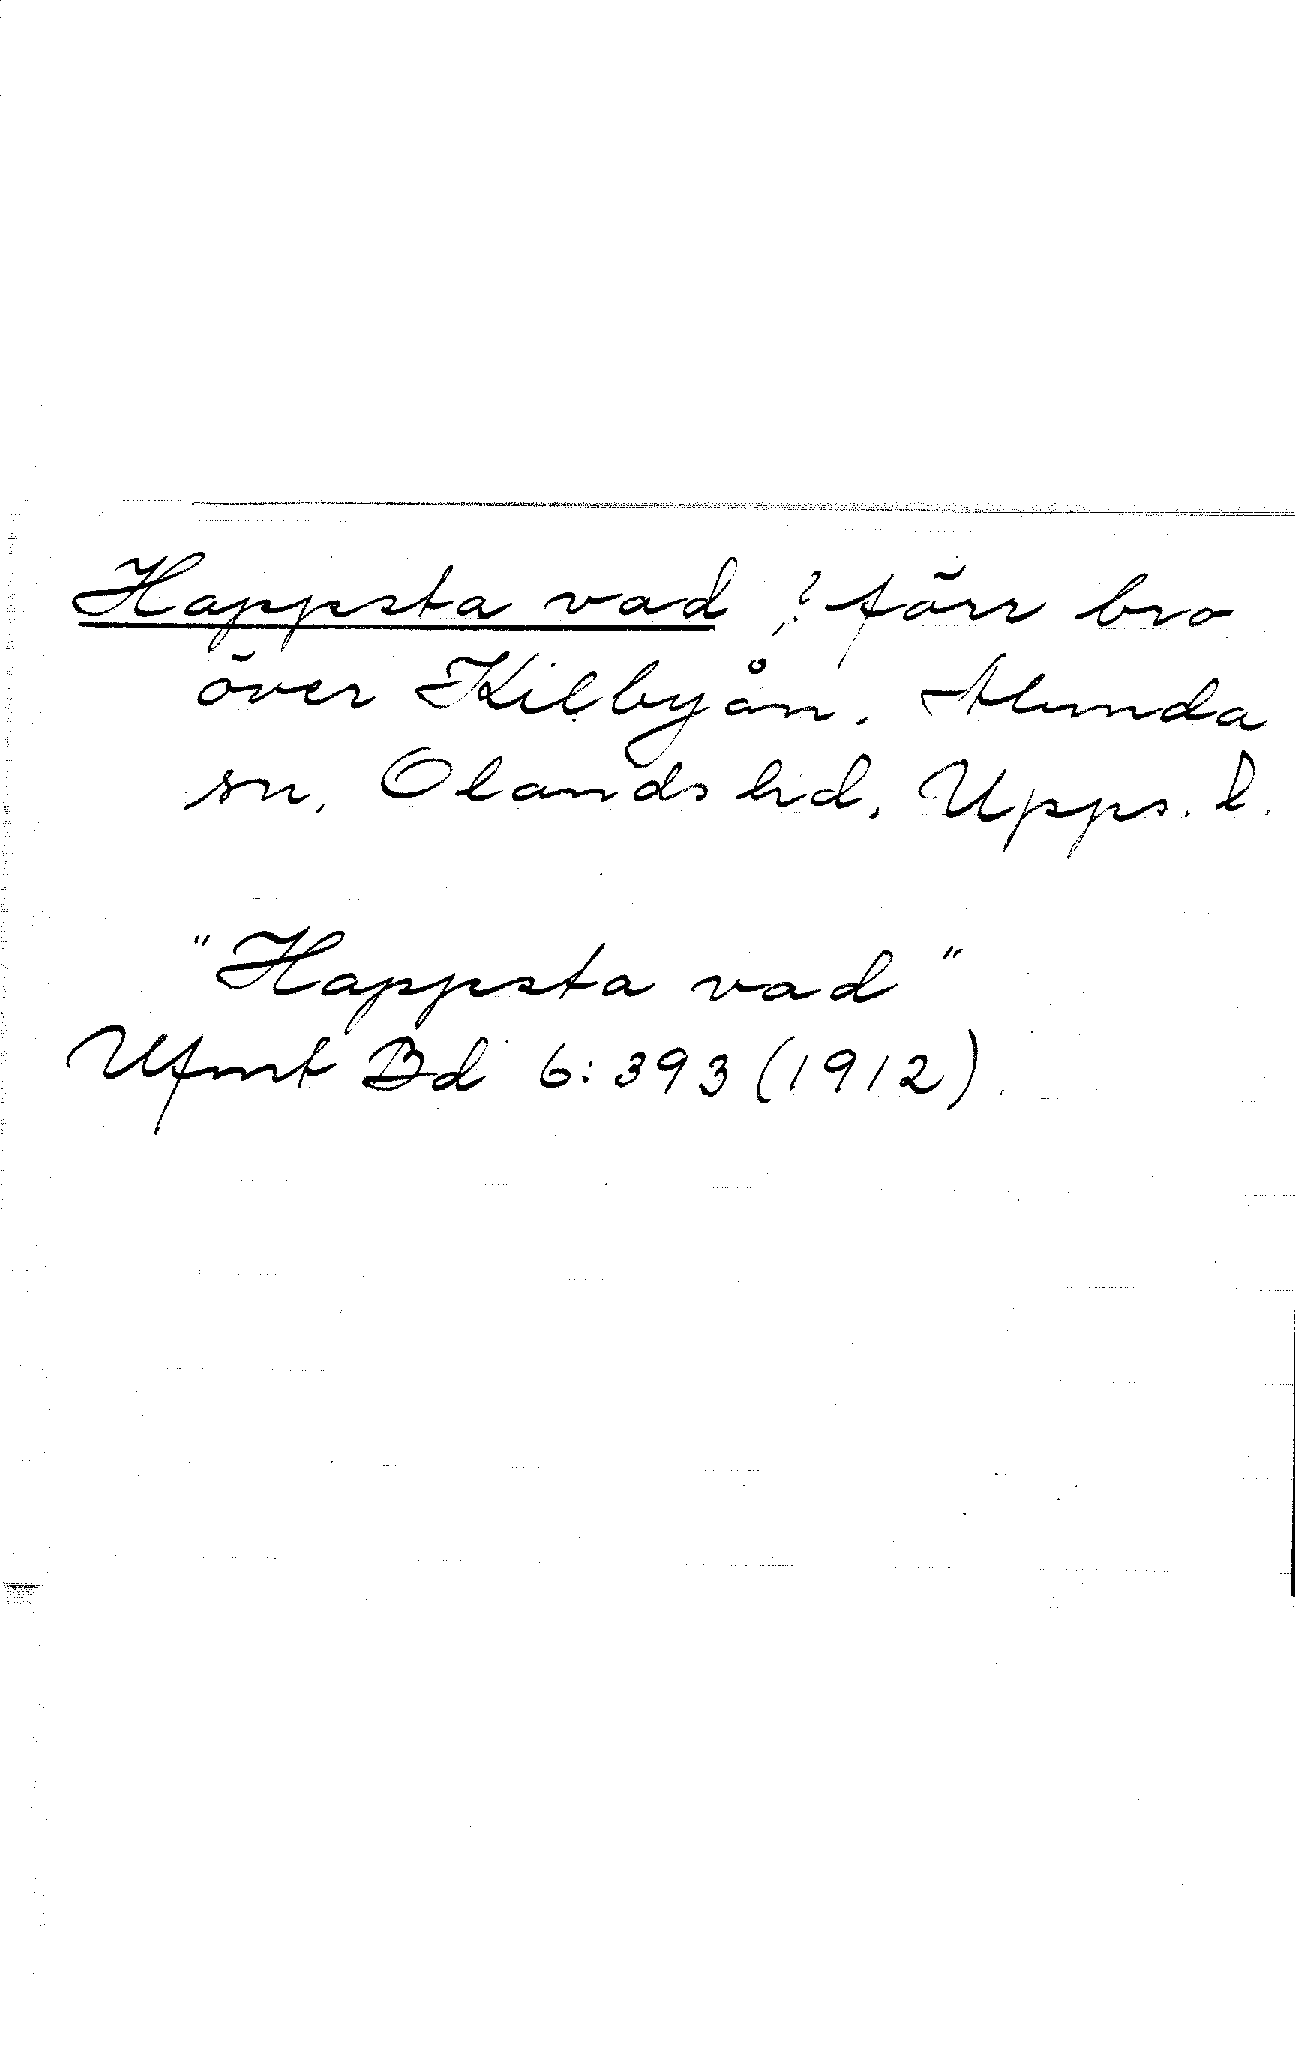 Happsta vad, ? förr bro
över Kilbyån. Alunda
sn, Olands hd, Upps. l.
"Happsta vad"
Ufmt Bd 6:393 (1912).